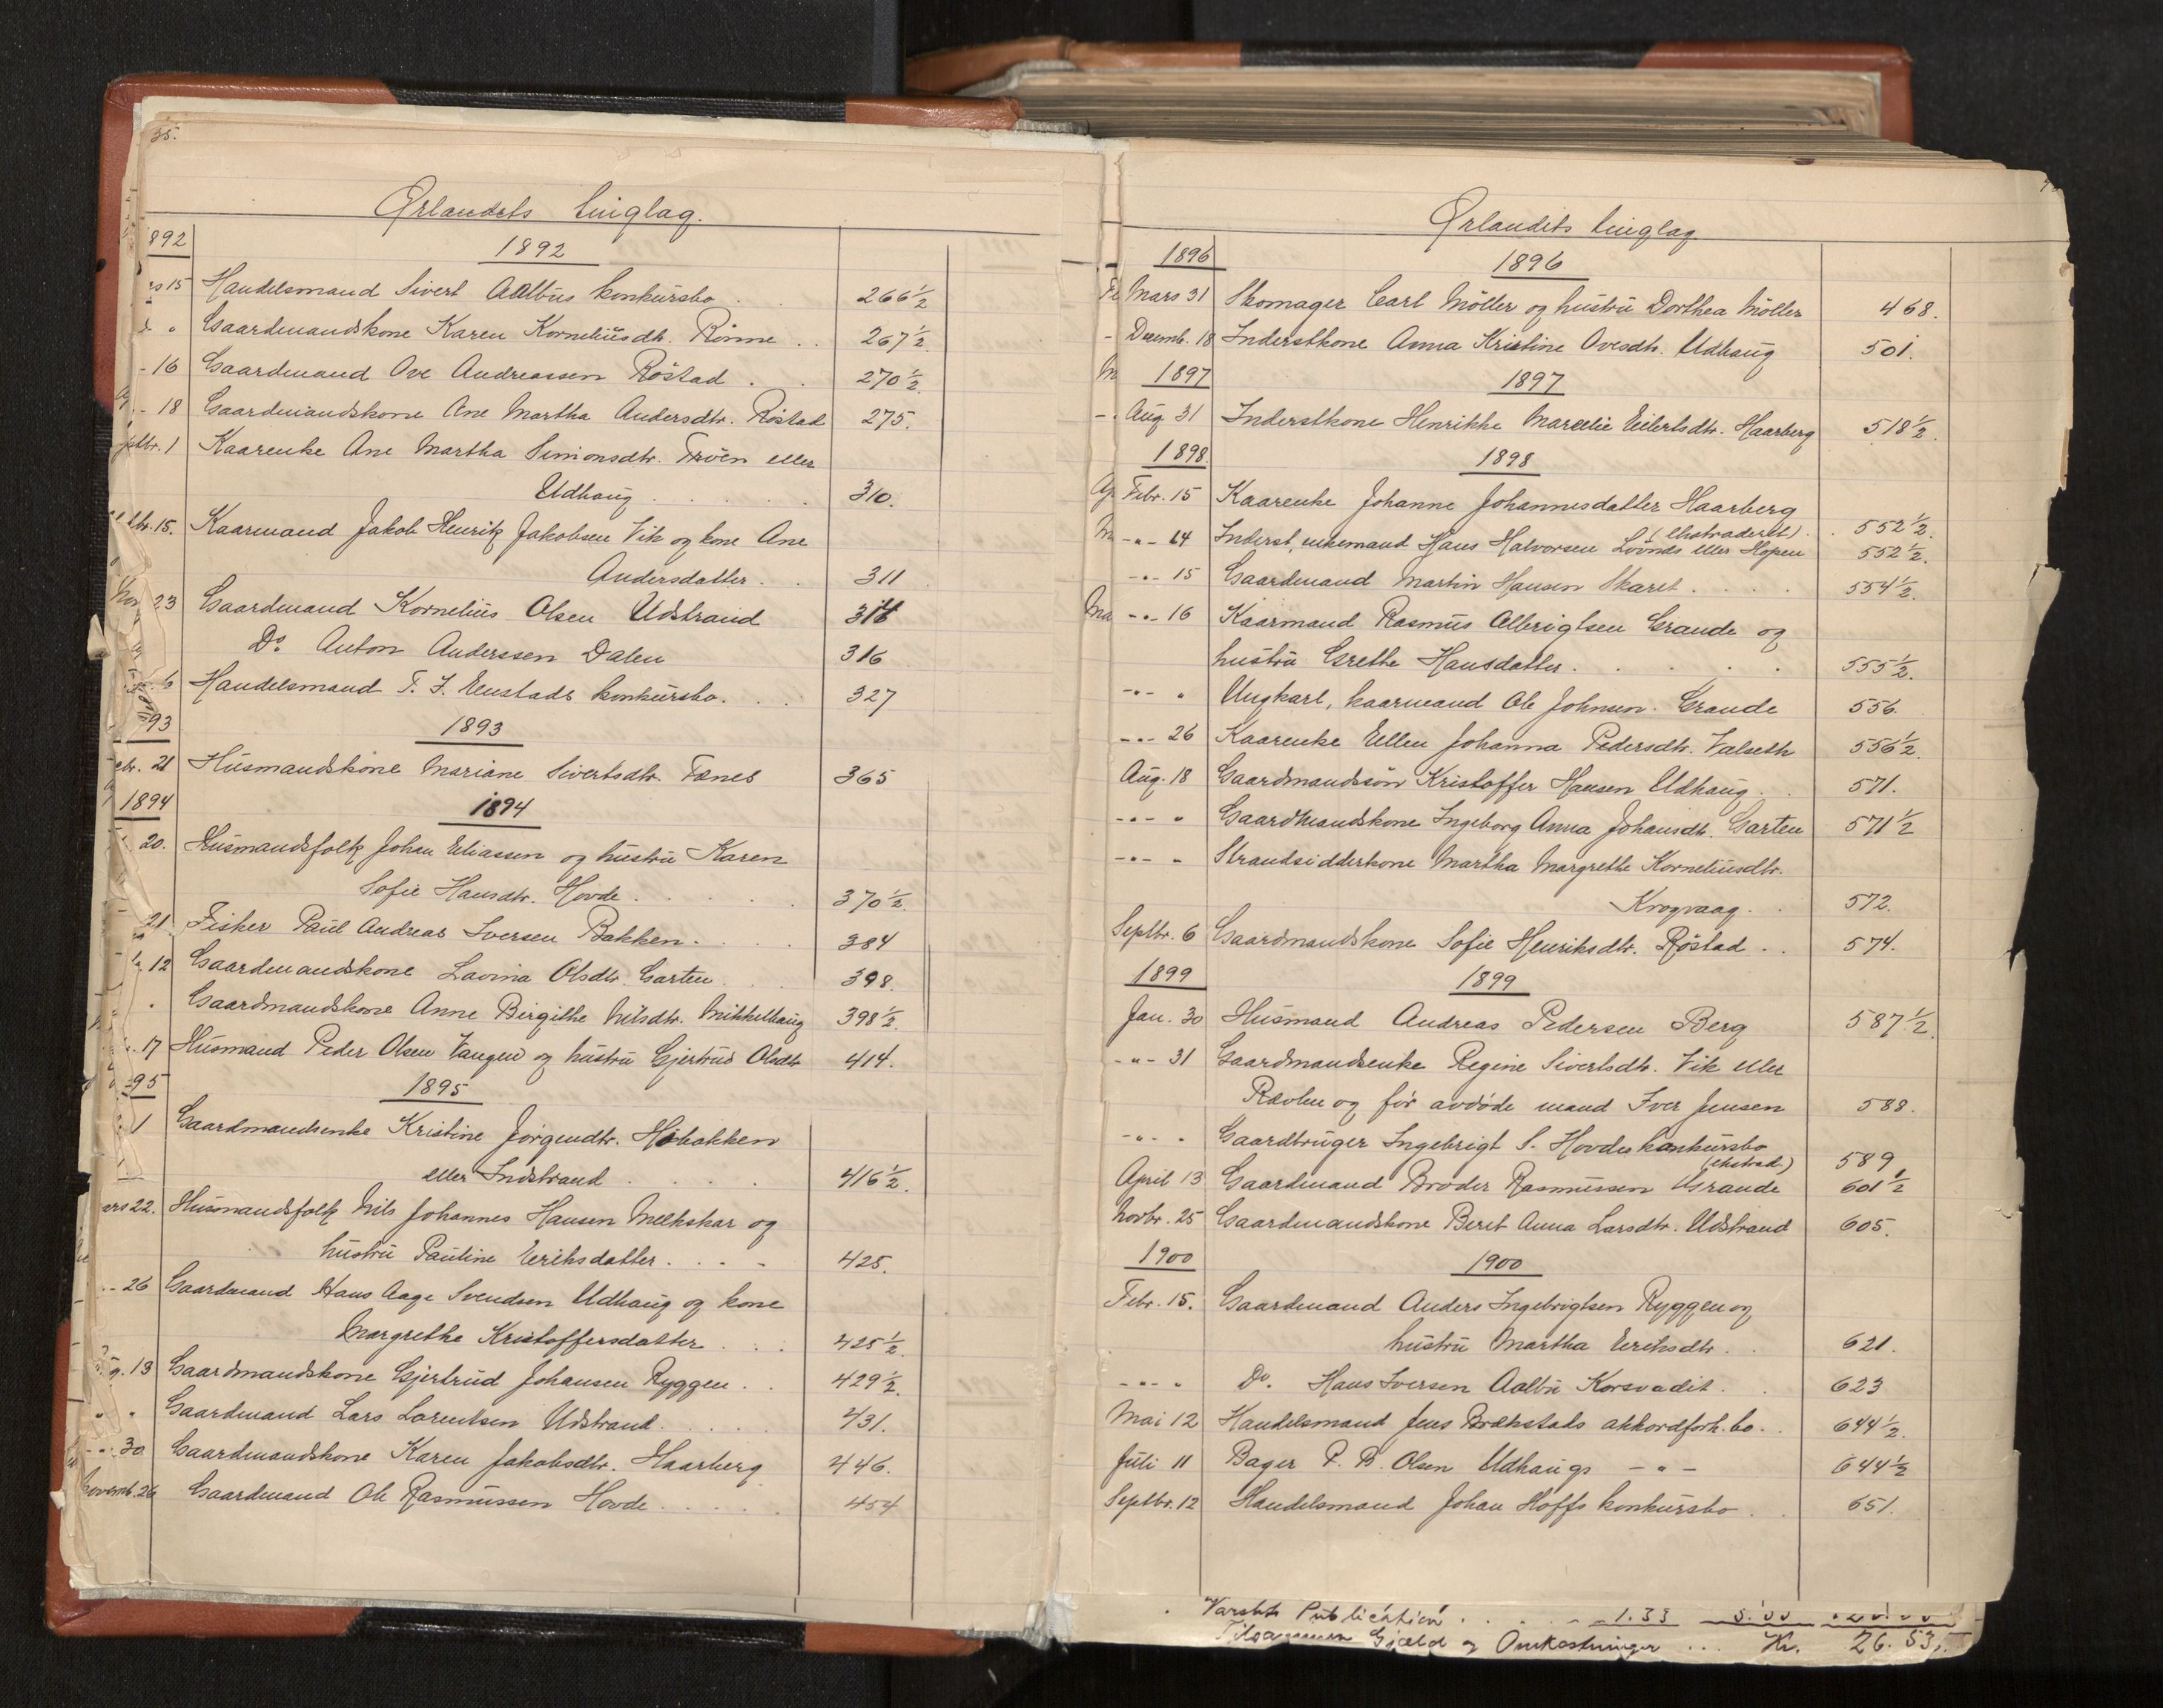 35.
Ørlandets tinglag.
892 1892
rs 15 Handelsmand Sivert Aalbus konkursbo . 266½
" Gaardmandskone Karen Korneliusdt. Rönne . . 267½
- 16 Gaardmand Ove Andreassen Röstad . . 270½
- 18 Gaardmandskone Ane Martha Andersdtr. Röstad 275.
ptbr. 1 Kaarenke Ane Martha Simonsdtr. Tröen eller
Udhaug . . . . . 310.
tbr. 15. Kaarmand Jakob Henrik Jakobsen Vik og kone Ane
Andersdatter . . 311
23 Gaardmand Kornelius Olsen Udstrand 316
Do Anton Anderssen Dalen 316
6 Handelsmand T. J. Enstads konkursbo . . . 327
93 1893
ebr. 21 Husmandskone Mariane Sivertsdtr. Fænes 365
1894 1894
20. Husmandsfolk Johan Eliassen og hustru Karen
Sofie Hansdtr. Hovde . . . . . 370½.
21 Fisker Paul Andreas Iversen Bakken . . . . 384
12 Gaardmandskone Lavina Olsdtr. Garten . . . 398.
" Gaardmandskone Anne Birgithe Nilsdtr. Mikkelhaug 398½.
17 Husmand Peder Olsen Vangen og hustru Gjertrud Olsdtr 414.
95 1895
1 Gaardmandsenke Kristine Jörgendtr. Höbakken
eller Indstrand . . . . . 416½.
ars 22. Husmandsfolk Nils Johannes Hansen Melkskar og
hustru Pauline Eriksdatter . . . - 425.
- 26 Gaardmand Hans Aage Svendsen Udhaug og kone
Margrethe Kristoffersdatter . . . 425½.
g. 13 Gaardmandskone Gjertrud Johansen Ryggen . . 429½.
" " Gaardmand Lars Lorentsen Udstrand . . . . 431.
- " - 30 Gaardmandskone Karen Jakobsdtr. Haarberg 446.
Novemb. 26 Gaardmand Ole Rasmussen Hovde . . . . 454
Ørlandets tinglag
1896 1896
Mars 31 Skomager Carl Möller og hustru Dorthea Möller 468.
Decemb. 18 Inderstkone Anna Kristine Ovesdtr. Udhaug 501.
1897 1897
Aug 31 Inderstkone Henrikke Marcelie Eilertsdtr. Haarberg 518½.
1898. 1898
Febr. 15 Kaarenke Johanne Johannesdatter Haarberg
(Ekstraderet) . . 552½.
- " - 14 Inderst, enkemand Hans Halvorsen Lövnds eller Hopen 552½.
- " - 15 Gaardmand Martin Hansen Skaret . . . . 554½.
- " - 16 Kaarmand Rasmus Albrigtsen Grande og
hustru Grethe Hansdatter . . . . . 555½.
- " - " Ungkarl, kaarmand Ole Johnsen Grande 556.
- " - 26 Kaarenke Ellen Johanna Pedersdtr. Valseth 556½.
Aug. 18 Gaardmandssön Kristoffer Hansen Udhaug . . 571.
- " - " Gaardmandskone Ingeborg Anna Johansdt. Garten 571½
- " - " Strandsidderkone Martha Margrethe Korneliusdtr.
Krogvaag . . 572.
Septbr. 6 Gaardmandskone Sofie Henriksdtr. Röstad . . 574.
1899 1899
Jan. 30 Husmand Andreas Pedersen Berg 587½.
- " - 31 Gaardmandsenke Regine Sivertsdtr. Vik eller
Rævlen og før avdøde mand Iver Jensen 588.
- " - " Gaardbruger Ingebrigt S. Hovdes konkursbo
(ekstrad.) 589
April 13 Gaardmand Broder Rasmussen Grande 601½
Novbr. 25 Gaardmandskone Beret Anna Larsdtr. Udstrand 605.
1900 1900
Febr. 15. Gaardmand Anders Ingebrigtsen Ryggen og
hustru Martha Eriksdtr. . . 621.
- " - " Do. Hans Iversen Aalbu Korsvadet . . 623
Mai 12 Handelsmand Jens Brækstads akkordforh. bo . . 644½.
Juli 11 Bager P. B. Olsen Udhaugs - " - 644½
Septbr. 12 Handelsmand Johan Hoffs konkursbo . . 651.
Varslets Publication . . . . 1.33
Tilsammen Gjæld og Omkostninger . . . Kr. 26.53